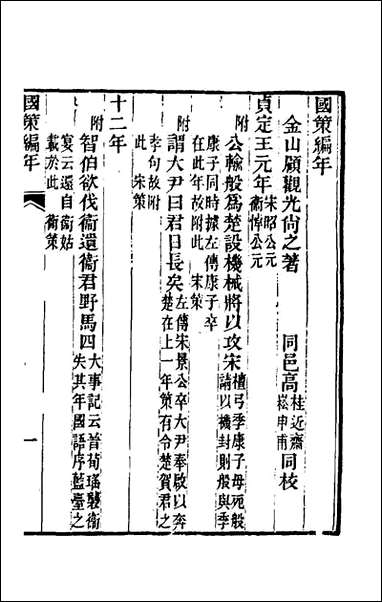 國策編年
金山顧觀光尚之著 同邑高桂近齋崧申甫同校
貞定王元年宋昭公元衞悼公元
附 公輸般爲楚設機械將以攻宋檀弓季康子母死般請以機封則般與季
康子同時據左傳康子卒在此年故附此 宋策
附 謂大尹曰君日長矣左傳宋景公卒大尹奉啟以奔楚在上一年策有令楚賀君之
孝句故附此 宋策
十二年
附 智伯欲伐衞遺衞君野馬四大事記云晉荀瑤襲衞失其年國語序藍臺之
宴云還自衞姑載於此 衞策
國策編年 一